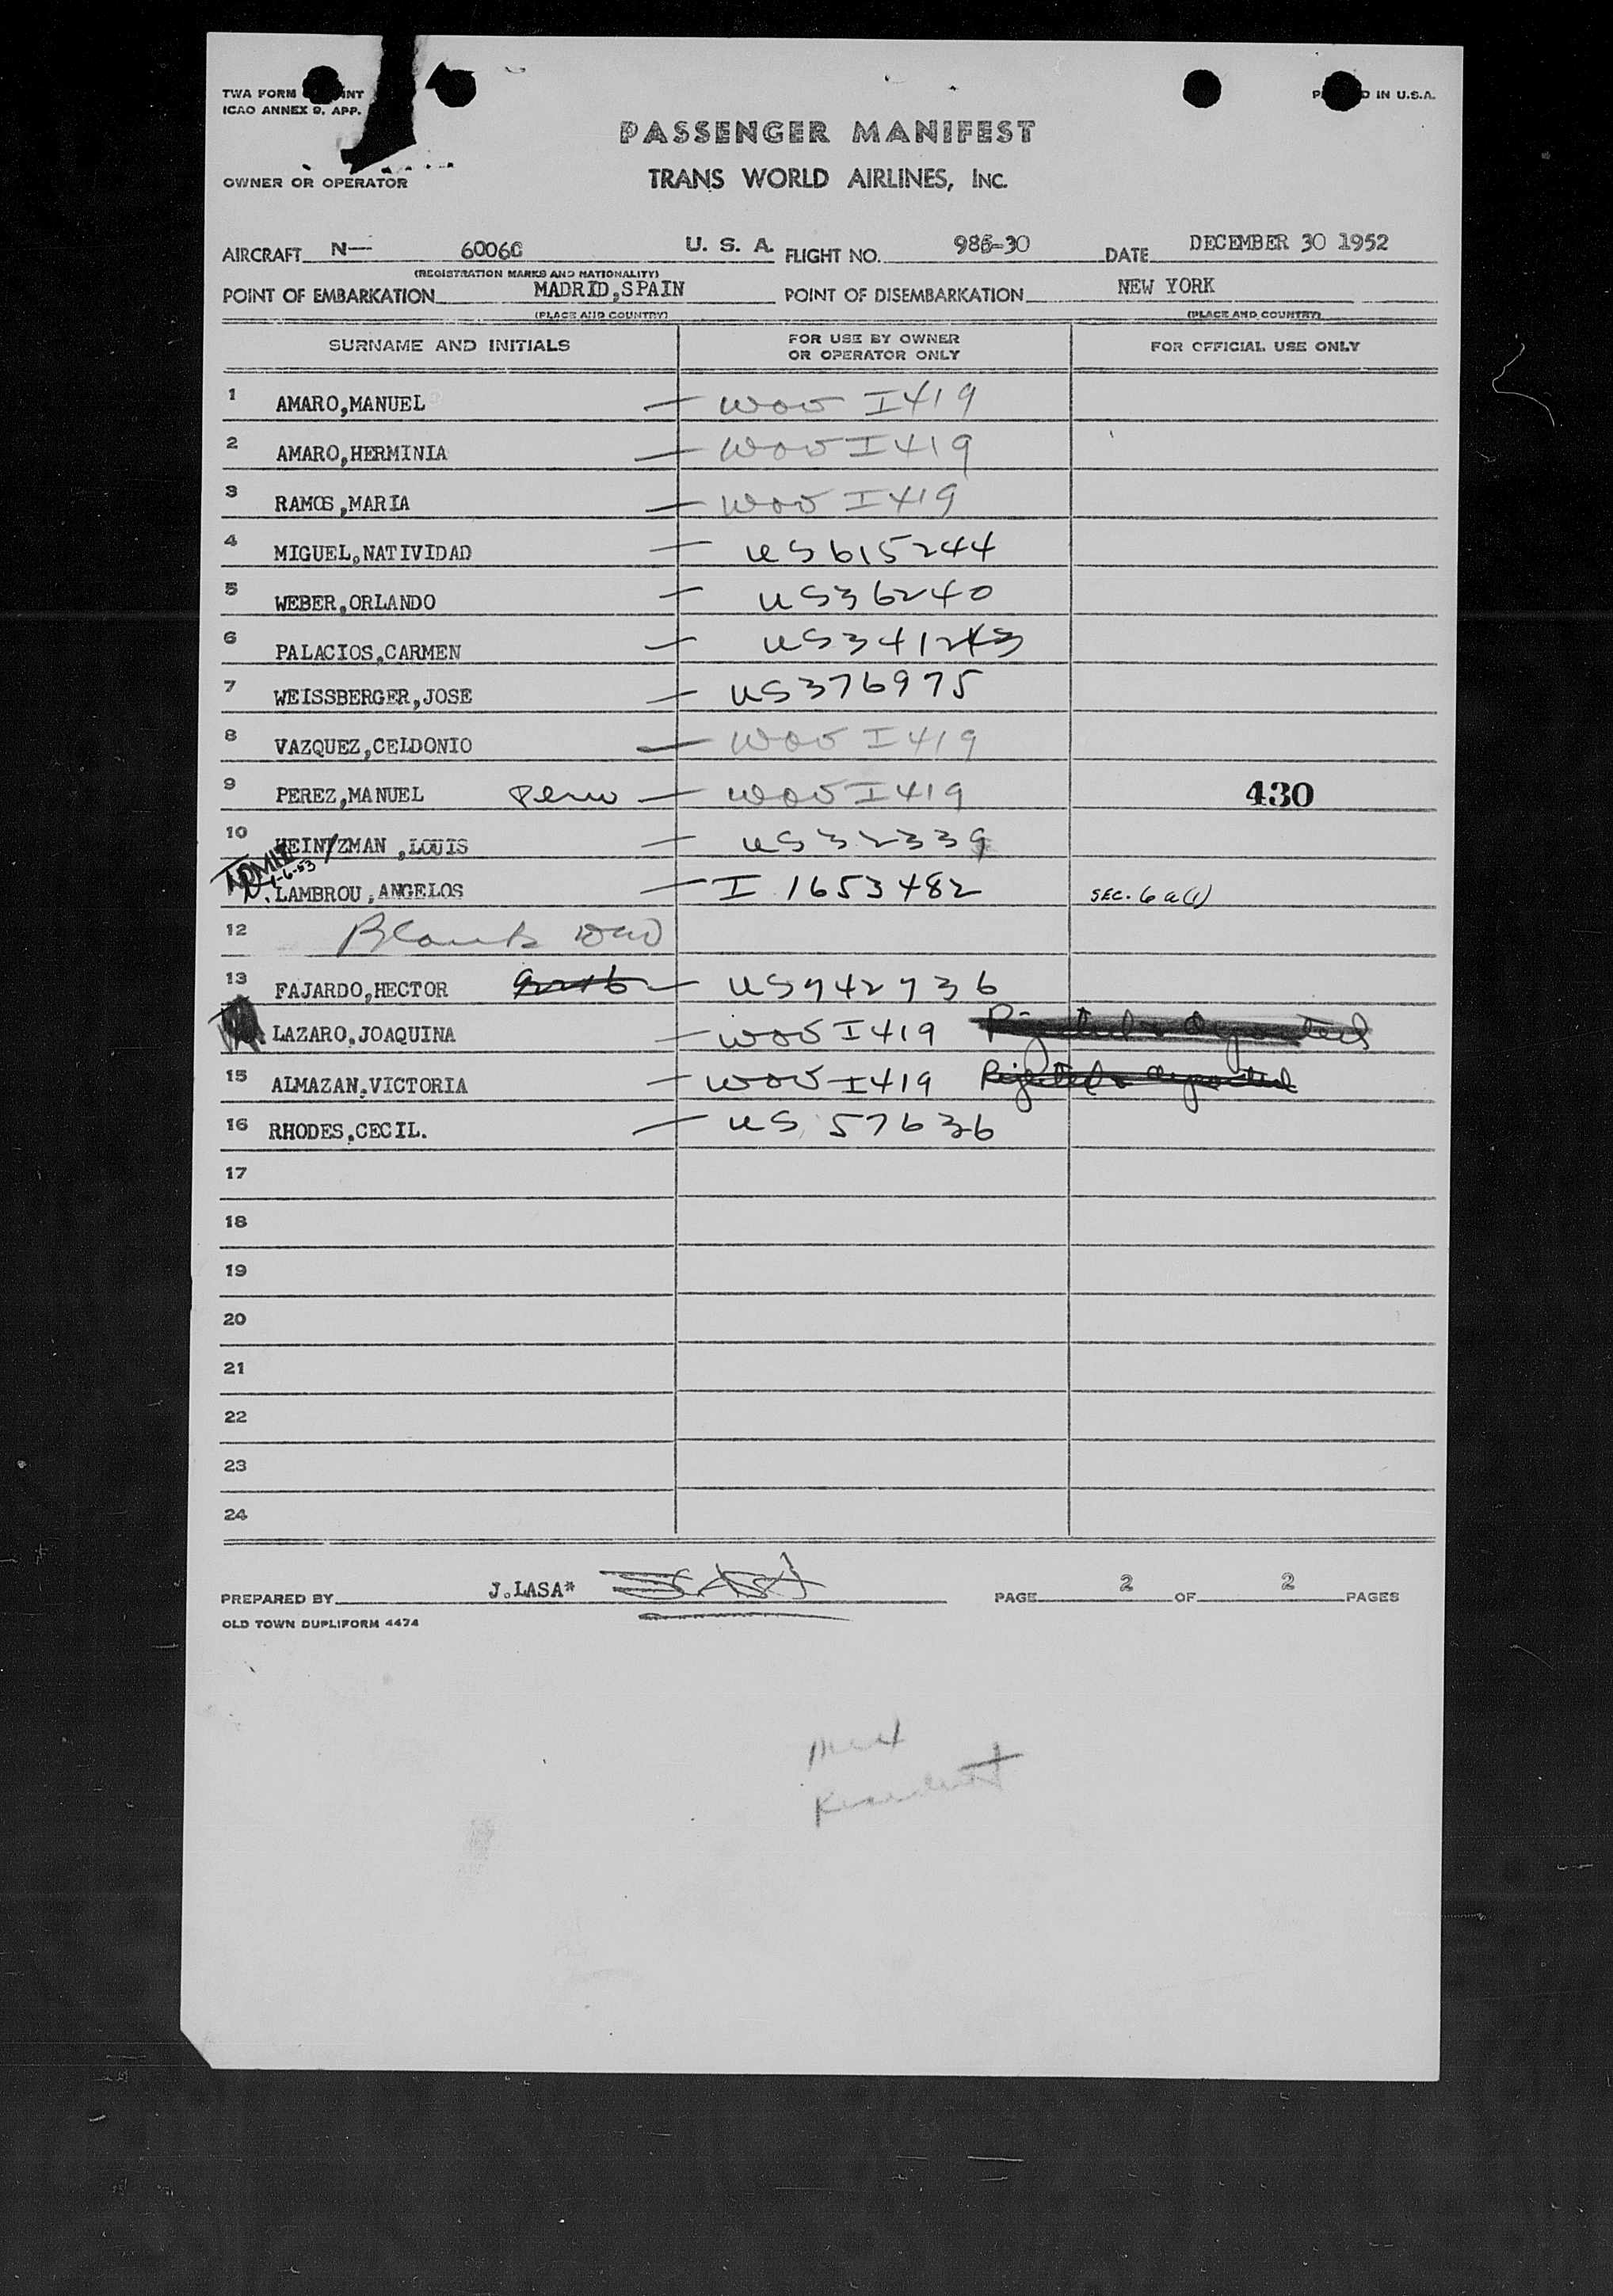 TWA FORM
ICAO ANNEX 9, APP.
IN U.S.A.
PASSENGER MANIFEST
TRANS WORLD AIRLINES, INC.
OWNER OR OPERATOR
AIRCRAFT N— 6006C U. S. A. FLIGHT NO. 986-30 DATE DECEMBER 30 1952
(REGISTRATION MARKS AND NATIONALITY)
POINT OF EMBARKATION MADRID,SPAIN POINT OF DISEMBARKATION NEW YORK
(PLACE AND COUNTRY) (PLACE AND COUNTRY)
SURNAME AND INITIALS FOR USE BY OWNER OR OPERATOR ONLY FOR OFFICIAL USE ONLY
1 AMARO,MANUEL — WOV I419
2 AMARO,HERMINIA — WOV I419
3 RAMOS,MARIA — WOV I419
4 MIGUEL,NATIVIDAD — US 615244
5 WEBER,ORLANDO — US 36240
6 PALACIOS,CARMEN — US
7 WEISSBERGER,JOSE — US 376975
8 VAZQUEZ,CELDONIO — WOV I419
9 PEREZ,MANUEL Peru — WOV I419 430
10 HEINTZMAN ,LOUIS — US 32339
1-6-53
LAMBROU,ANGELOS — I 1653482 SEC. 6 a (1)
12 Blank
13 FAJARDO,HECTOR — US 742736
LAZARO,JOAQUINA — WOV I419 Rejected & deported
15 ALMAZAN,VICTORIA — WOV I419 Rejected & deported
16 RHODES,CECIL. — US 57636
17
18
19
20
21
22
23
24
PREPARED BY J.LASA* PAGE 2 OF 2 PAGES
OLD TOWN DUPLIFORM 4474
Resident